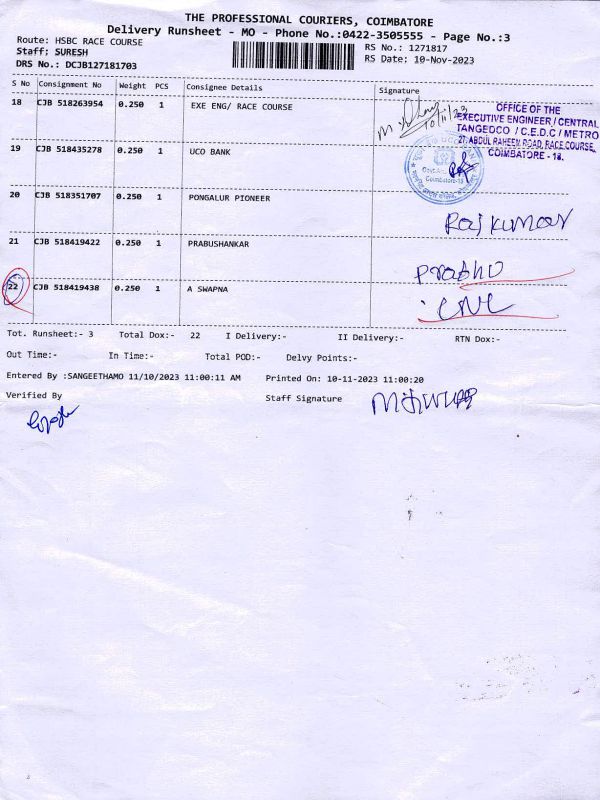 THE PROFESSIONAL COURIERS, COIMBATORE
Delivery Runsheet - MO - Phone No.:0422-3505555 - Page No.:3
Route: HSBC RACE COURSE
RS No.: 1271817
Staff; SURESH
RS Date: 10-Nov-2023
DRS No.: DCJB127181703
S No Consignment No Weight PCS Consignee Details Signature
18 CJB 518263954 0.250 1 EXE ENG/ RACE COURSE
10/11/23
OFFICE OF THE
EXECUTIVE ENGINEER / CENTRAL
TANGEDCO / C.E.D.C / METRO
27, ABDUL RAHEEM ROAD, RACE COURSE,
COIMBATORE - 18.
19 CJB 518435278 0.250 1 UCO BANK
Coimbatore-18
20 CJB 518351707 0.250 1 PONGALUR PIONEER
Rajkumar
21 CJB 518419422 0.250 1 PRABUSHANKAR
Prabhu
22 CJB 518419438 0.250 1 A SWAPNA
Tot. Runsheet:- 3 Total Dox:- 22 I Delivery:- II Delivery:- RTN Dox:-
Out Time:- In Time:- Total POD:- Delvy Points:-
Entered By :SANGEETHAMO 11/10/2023 11:00:11 AM Printed On: 10-11-2023 11:00:20
Verified By
Staff Signature